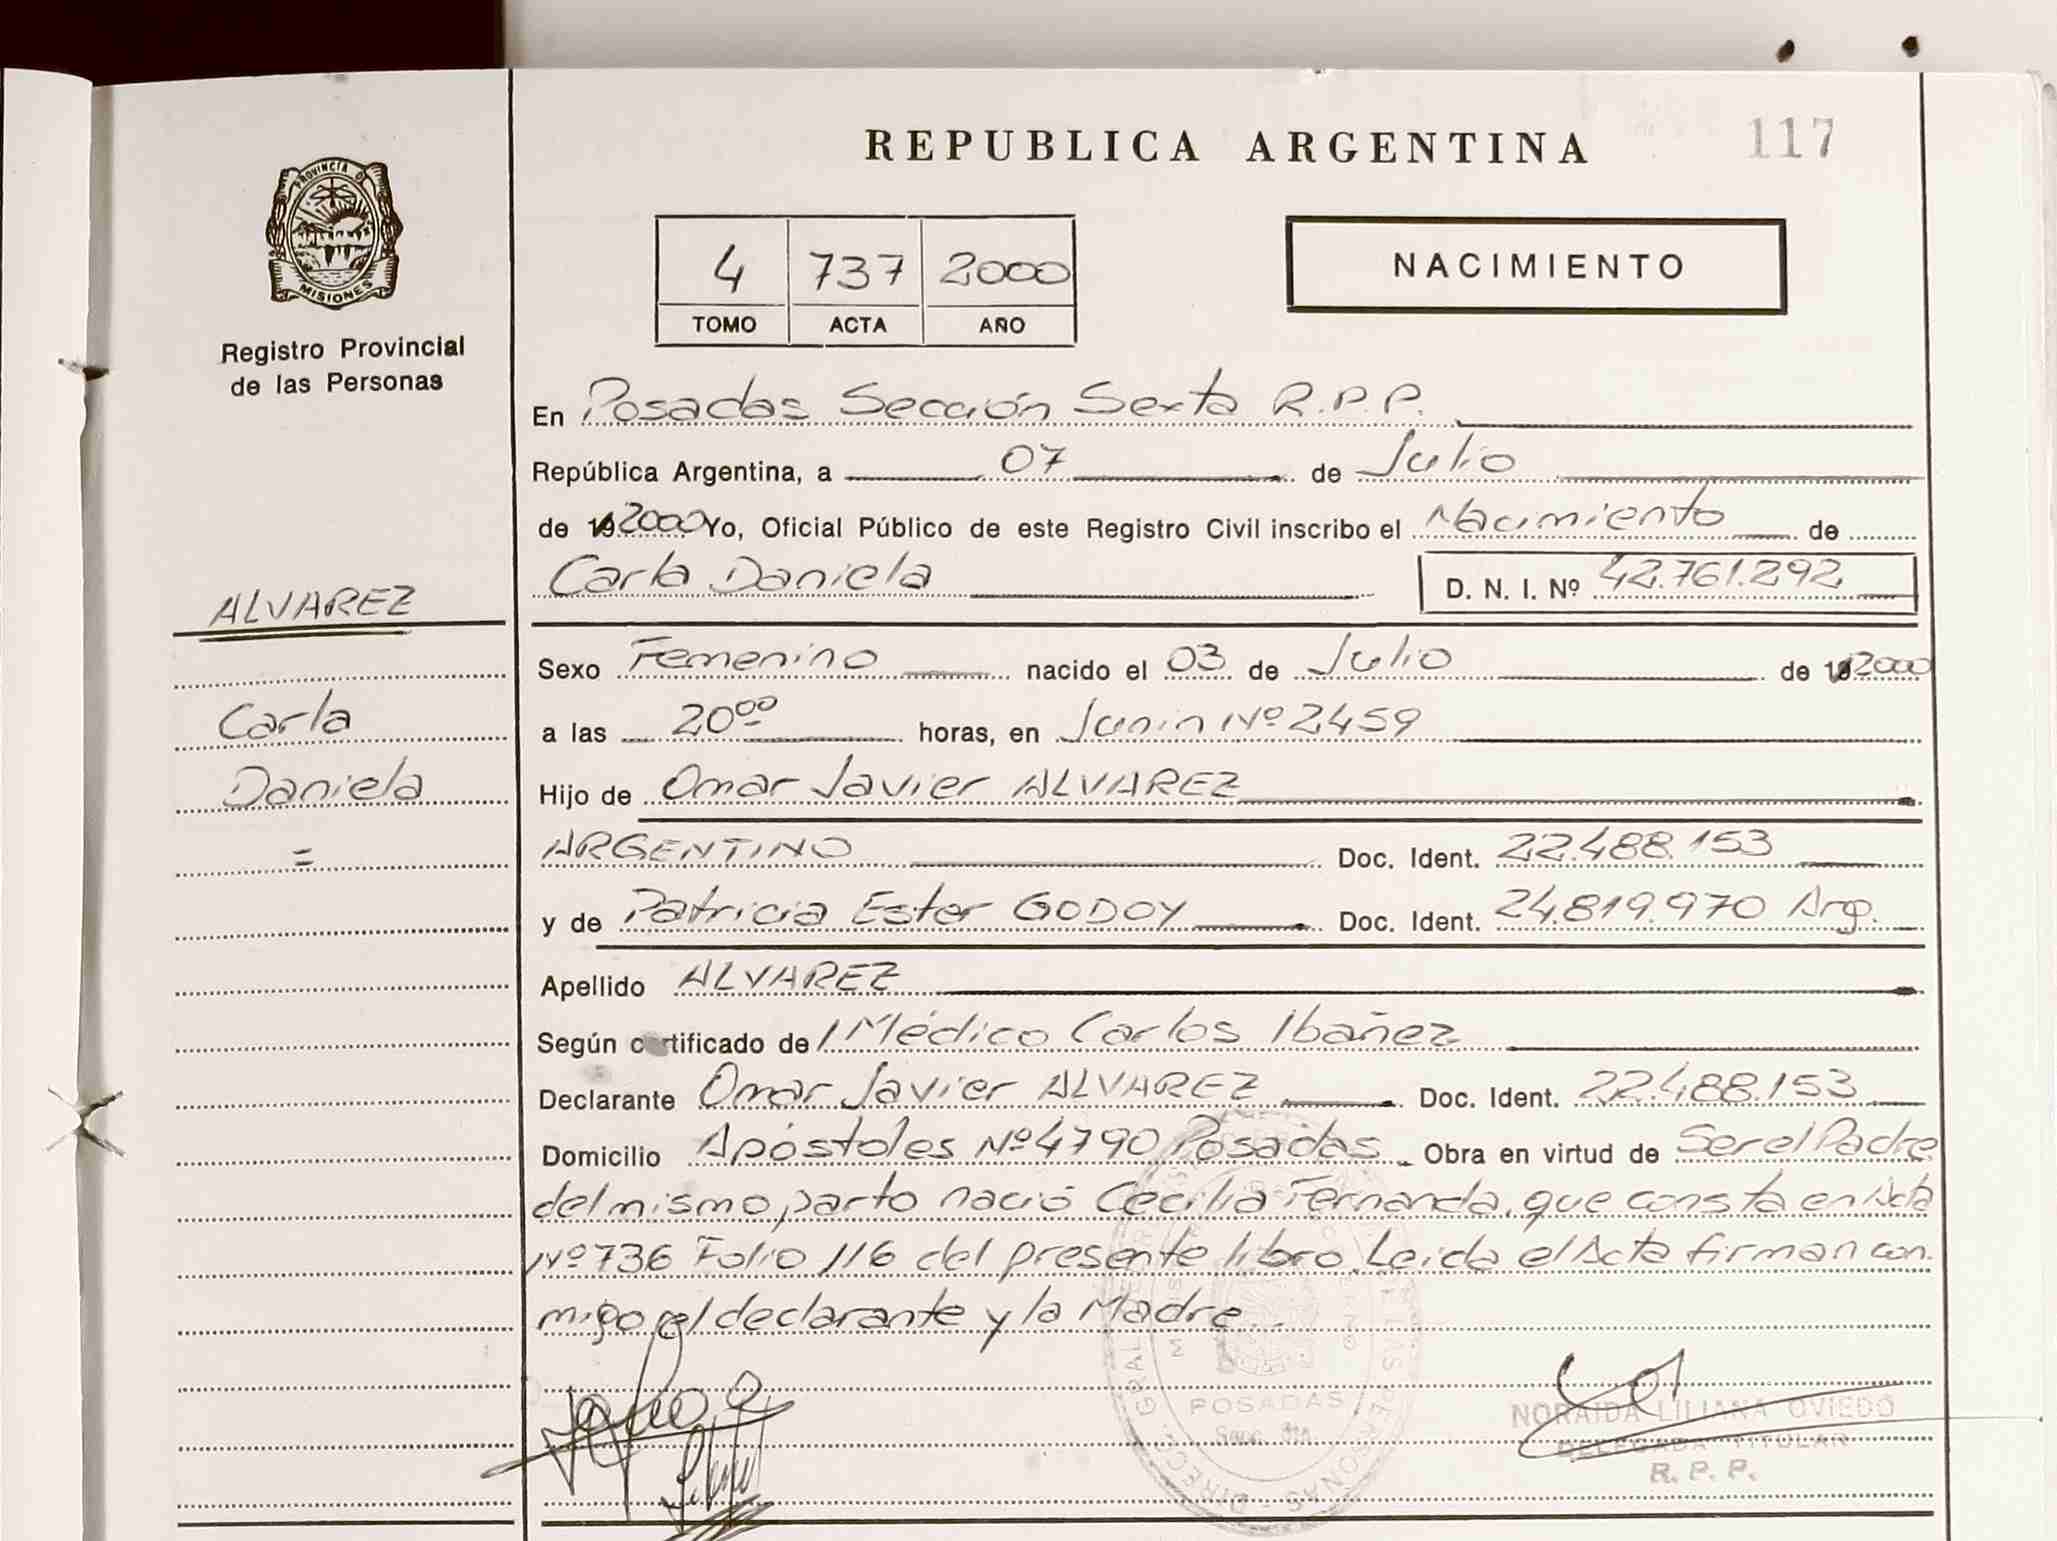 REPUBLICA ARGENTINA
117
PROVINCIA D
MISIONES
Registro Provincial
de las Personas
4 737 2000
TOMO ACTA AÑO
NACIMIENTO
En Posadas Sección Sexta R.P.P.
República Argentina, a 07 de Julio
de 19 2000 Yo, Oficial Público de este Registro Civil inscribo el Nacimiento de
Carla Daniela D. N. I. Nº 42.761.292
ALVAREZ
Carla
Daniela
=
Sexo Femenino nacido el 03 de Julio de 19 2000
a las 20⁰⁰ horas, en Junin Nº 2459
Hijo de Omar Javier ALVAREZ
ARGENTINO Doc. Ident. 22.488.153
y de Patricia Ester GODOY Doc. Ident. 24.819.970 Arg.
Apellido ALVAREZ
Según certificado de l Médico Carlos Ibañez
Declarante Omar Javier ALVAREZ Doc. Ident. 22.488.153
Domicilio Apóstoles Nº 4790 Posadas. Obra en virtud de Ser el Padre
del mismo parto nació Cecilia Fernanda, que consta en Acta
Nº 736 Folio 116 del presente libro. Leida el Acta firman con.
migo el declarante y la Madre..
POSADAS
NORAIDA LILIANA OVIEDO
DELEGADA TITULAR
R. P. P.